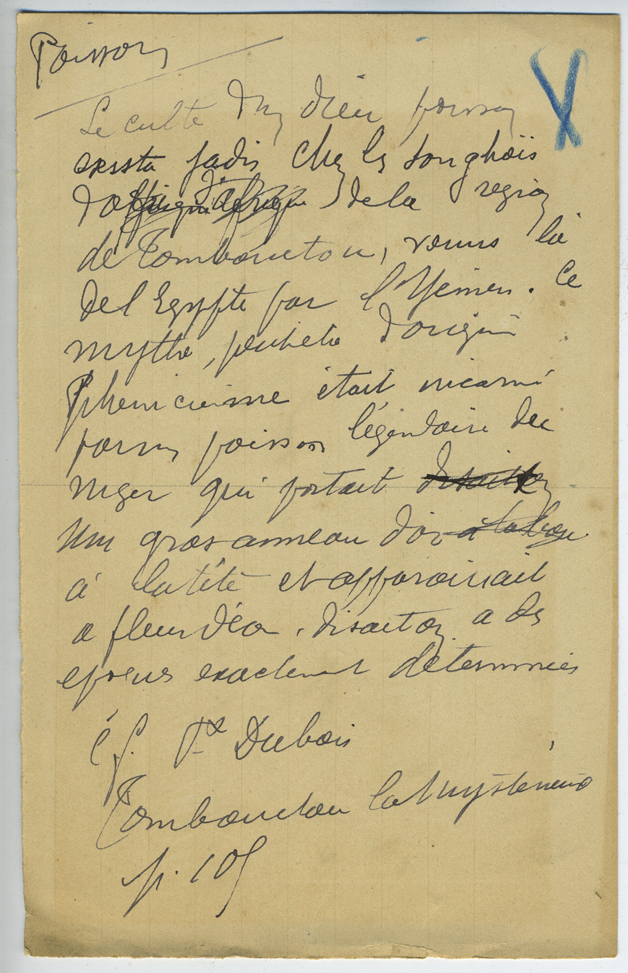 Poisson
Le culte d'un dieu poisson
exista jadis chez les Songhoïs
de la région
de Tombouctou, venus là
de l'Egypte par l'Yémen. Ce
mythe, peutetre d'origine
Phenicienne était incarné
poisson légendaire du
Niger qui portait
Un gros anneau d'or
à la tête et apparaissait
a fleur d'eau, disait on, a des
epoques exactement déterminées
Cf. Dubois
Tombouctou la Mystérieuse
p. 105